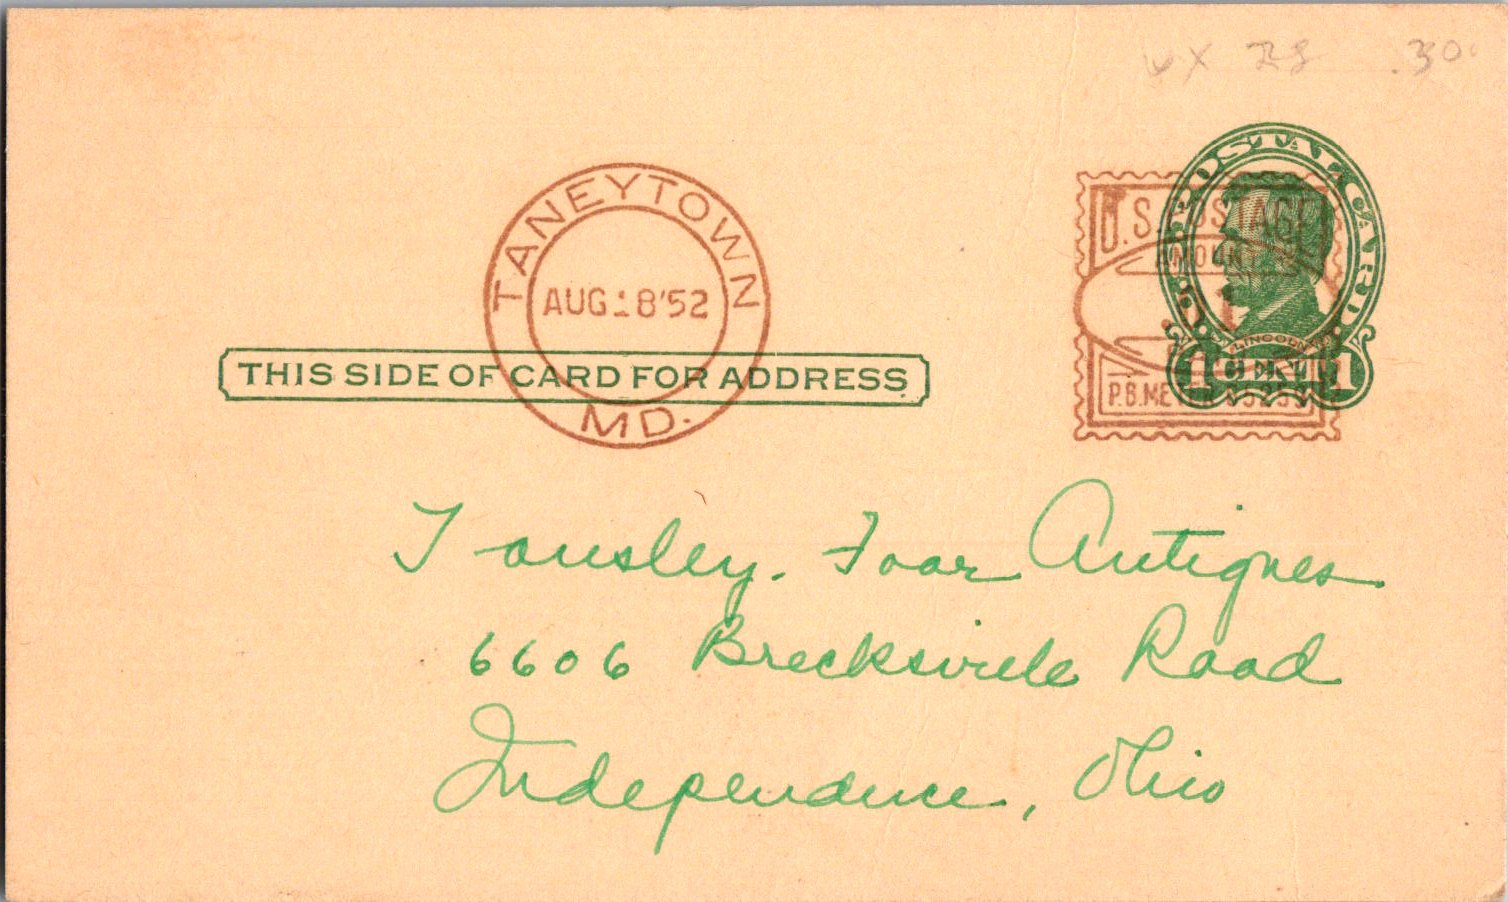 UX 28 .30
POSTAL CARD
U.S. POSTAGE
AMOUNT
LINCOLN
1 CENT 1
P.B. METER
TANEYTOWN
AUG 18'52
MD.
THIS SIDE OF CARD FOR ADDRESS
Tansley. Foar Antiques
6606 Brecksville Road
Independence, Ohio